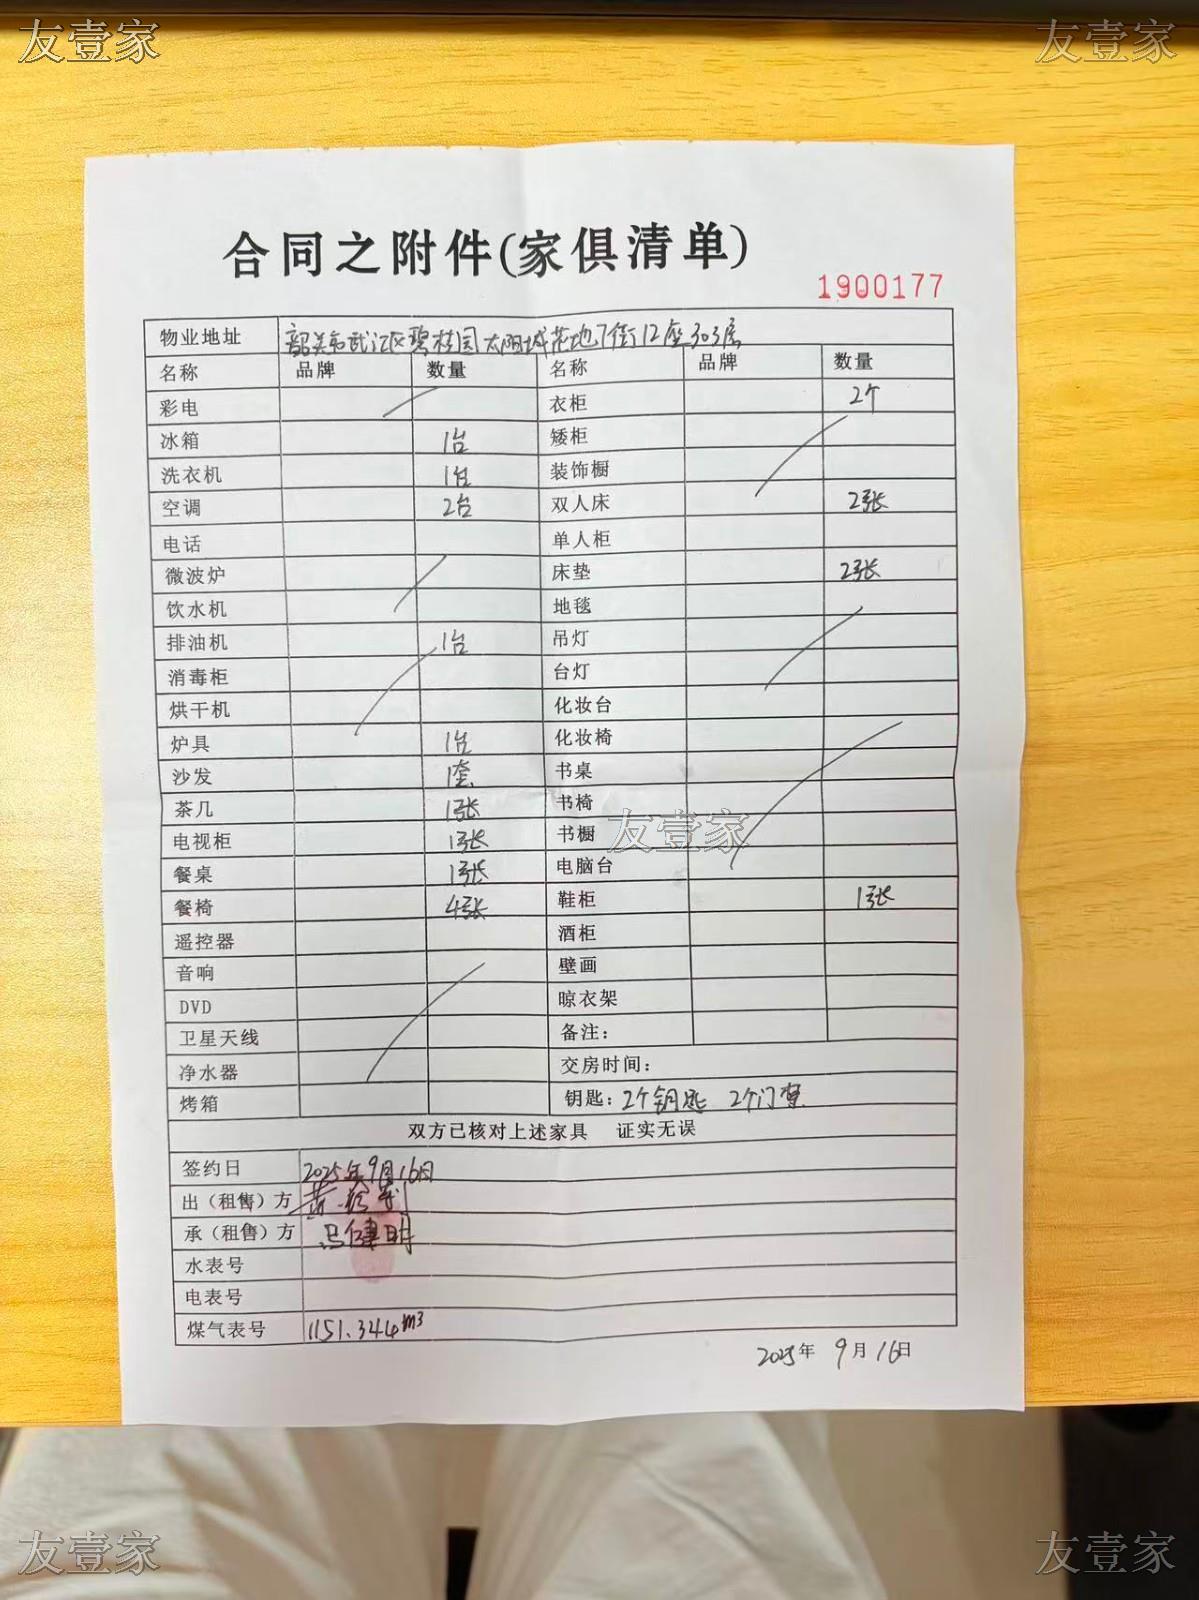 友壹家 友壹家
合同之附件(家俱清单)
1900177
物业地址 韶关市武江区碧桂园太阳城花地7街12座303房
名称 品牌 数量 名称 品牌 数量
彩电 衣柜 2个
冰箱 1台 矮柜
洗衣机 1台 装饰橱
空调 2台 双人床 2张
电话 单人柜
微波炉 床垫 2张
饮水机 地毯
排油机 1台 吊灯
消毒柜 台灯
烘干机 化妆台
炉具 1台 化妆椅
沙发 1套 书桌
茶几 1张 书椅
友壹家
电视柜 1张 书橱
餐桌 1张 电脑台
餐椅 4张 鞋柜 1张
遥控器 酒柜
音响 壁画
DVD 晾衣架
卫星天线 备注：
净水器 交房时间：
烤箱 钥匙：2个钥匙 2个门禁
双方已核对上述家具 证实无误
签约日 2025年9月16日
出（租售）方
承（租售）方 冯健明
水表号
电表号
煤气表号 1151.344m3
2025年 9月16日
友壹家 友壹家